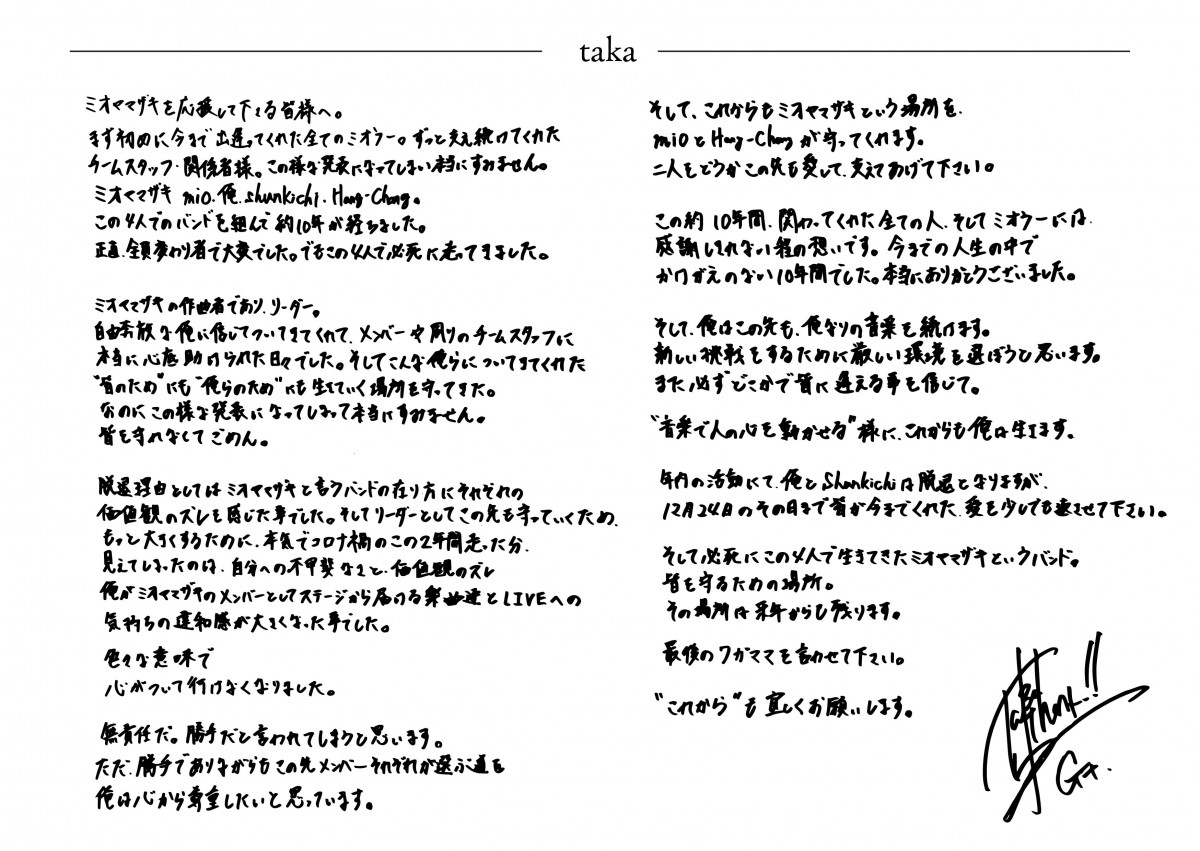 taka
ミオヤマザキを応援して下さる皆様へ。
まず初めに今まで出逢ってくれた全てのミオラー。ずっと支え続けてくれた
チームスタッフ・関係者様。この様な発表になってしまい本当にすみません。
ミオヤマザキ mio.俺.shunkichi.Hang-Chang。
この4人でのバンドを組んで約10年が経ちました。
正直、全員変わり者で大変でした。でもこの4人で必死に走ってきました。
ミオヤマザキの作曲者であり、リーダー。
自由奔放な俺に信じてついてきてくれて、メンバーや周りのチームスタッフに
本当に心底助けられた日々でした。そしてこんな俺らについてきてくれた
"皆のため"にも"俺らのため"にも生きていく場所を守ってきた。
なのにこの様な発表になってしまって本当にすみません。
皆を守れなくてごめん。
脱退理由としてはミオヤマザキと言うバンドの在り方にそれぞれの
価値観のズレを感じた事でした。そしてリーダーとしてこの先も守っていくため、
もっと大きくするために、本気でコロナ禍のこの2年間走った分、
見えてしまったのは、自分への不甲斐なさと、価値観のズレ
俺がミオヤマザキのメンバーとしてステージから届ける楽曲達とLIVEへの
気持ちの違和感が大きくなった事でした。
色々な意味で
心がついて行けなくなりました。
無責任だ。勝手だと言われてしまうと思います。
ただ、勝手でありながらもこの先メンバーそれぞれが選ぶ道を
俺は心から尊重したいと思っています。
そして、これからもミオヤマザキという場所を、
mioとHang-Changが守ってくれます。
二人をどうかこの先も愛して、支えてあげて下さい。
この約10年間、関わってくれた全ての人、そしてミオラーには、
感謝しきれない程の想いです。今までの人生の中で
かけがえのない10年間でした。本当にありがとうございました。
そして、俺はこの先も、俺なりの音楽を続けます。
新しい挑戦をするために厳しい環境を選ぼうと思います。
また必ずどこかで皆に逢える事を信じて。
"音楽で人の心を動かせる"様に、これからも俺は生きます。
年内の活動にて、俺とShunkichiは脱退となりますが、
12月24日のその日まで皆が今までくれた、愛を少しでも返させて下さい。
そして必死にこの4人で生きてきたミオヤマザキというバンド。
皆を守るための場所。
その場所は来年からも残ります。
最後のワガママを言わせて下さい。
"これから"も宜しくお願いします。
Gt.